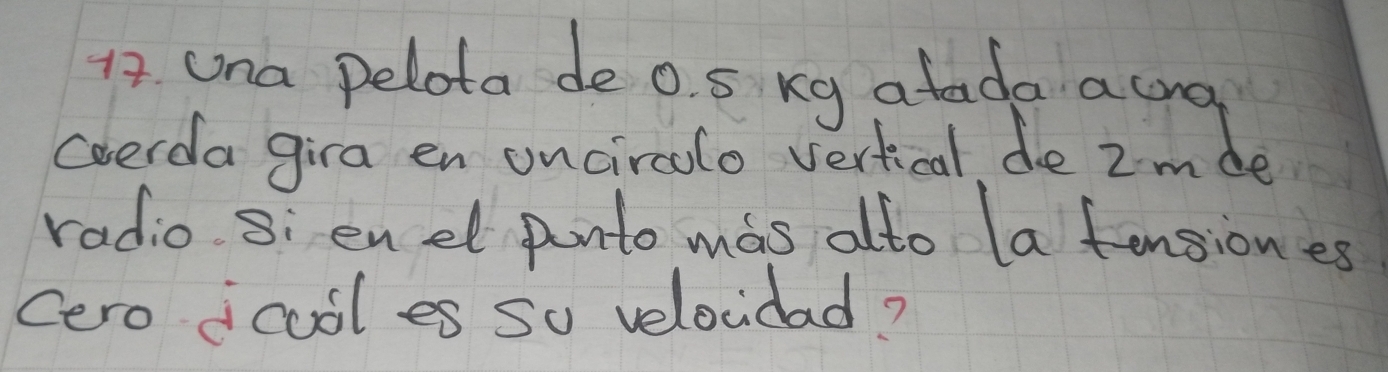 17. Una pelota de 0.5 kg atada a una
cuerda gira en un circulo vertical de 2 m de
radio. Si en el punto más alto la tension es
cero ¿cuál es su velocidad?